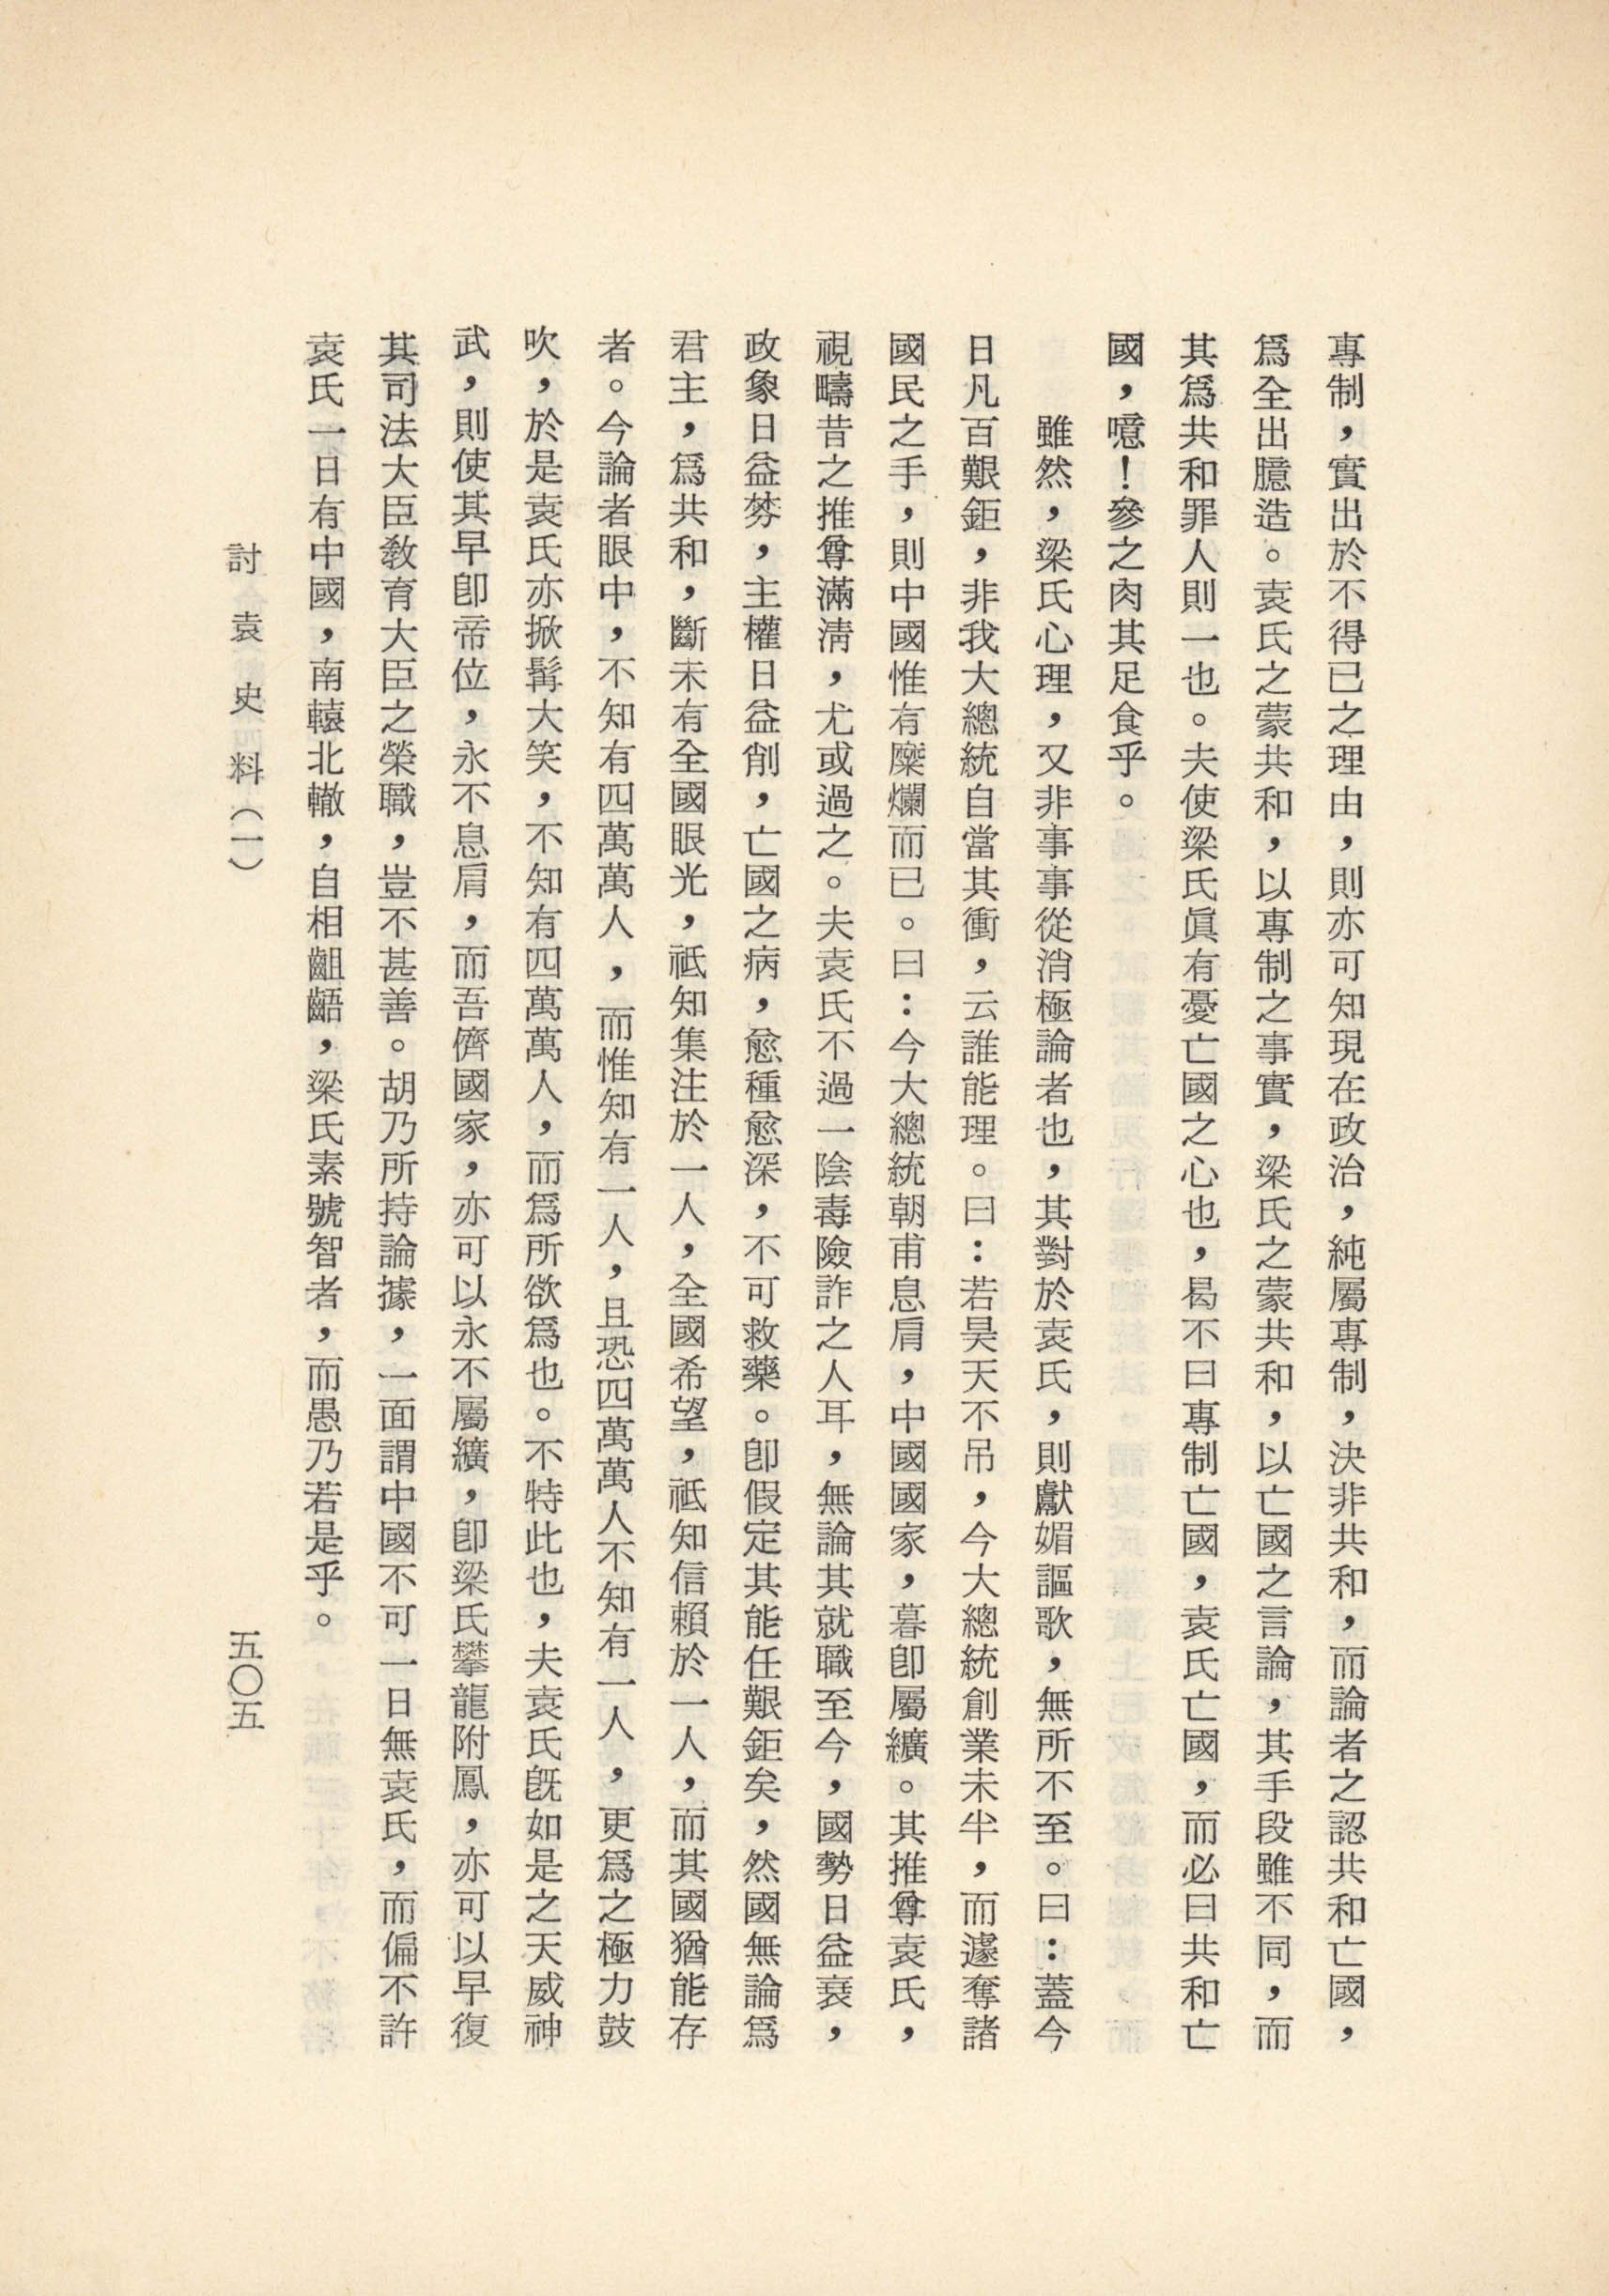 專制，實出於不得已之理由，則亦可知現在政治，純屬專制，決非共和，而論者之認共和亡國，
爲全出臆造。袁氏之蒙共和，以專制之事實，梁氏之蒙共和，以亡國之言論，其手段雖不同，而
其爲共和罪人則一也。夫使梁氏眞有憂亡國之心也，曷不曰專制亡國，袁氏亡國，而必曰共和亡
國，噫！參之肉其足食乎。
雖然，梁氏心理，又非事事從消極論者也，其對於袁氏，則獻媚謳歌，無所不至。曰：蓋今
日凡百艱鉅，非我大總統自當其衝，云誰能理。曰：若昊天不吊，今大總統創業未半，而遽奪諸
國民之手，則中國惟有糜爛而已。曰：今大總統朝甫息肩，中國國家，暮卽屬纊。其推尊袁氏，
視疇昔之推尊滿淸，尤或過之。夫袁氏不過一陰毒險詐之人耳，無論其就職至今，國勢日益衰，
政象日益棼，主權日益削，亡國之病，愈種愈深，不可救藥。卽假定其能任艱鉅矣，然國無論爲
君主，爲共和，斷未有全國眼光，祗知集注於一人，全國希望，祗知信賴於一人，而其國猶能存
者。今論者眼中，不知有四萬萬人，而惟知有一人，且恐四萬萬人不知有一人，更爲之極力鼓
吹，於是袁氏亦掀髯大笑，不知有四萬萬人，而爲所欲爲也。不特此也，夫袁氏旣如是之天威神
武，則使其早卽帝位，永不息肩，而吾儕國家，亦可以永不屬纊，卽梁氏攀龍附鳳，亦可以早復
其司法大臣敎育大臣之榮職，豈不甚善。胡乃所持論據，一面謂中國不可一日無袁氏，而偏不許
袁氏一日有中國，南轅北轍，自相齟齬，梁氏素號智者，而愚乃若是乎。
討袁史料（一）
五〇五